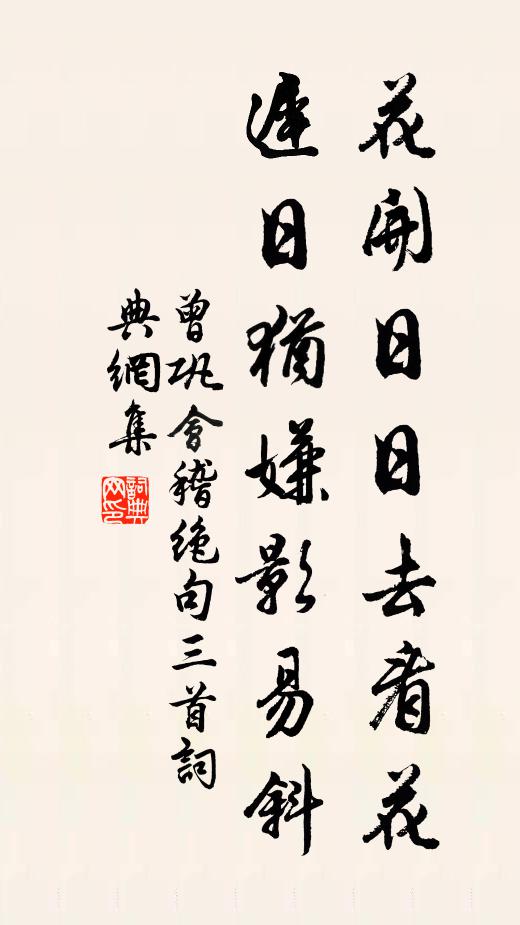 花開日日去看花
遲日猶嫌影易斜
曾巩會稽绝句三首詞
典網集
詞典
网印